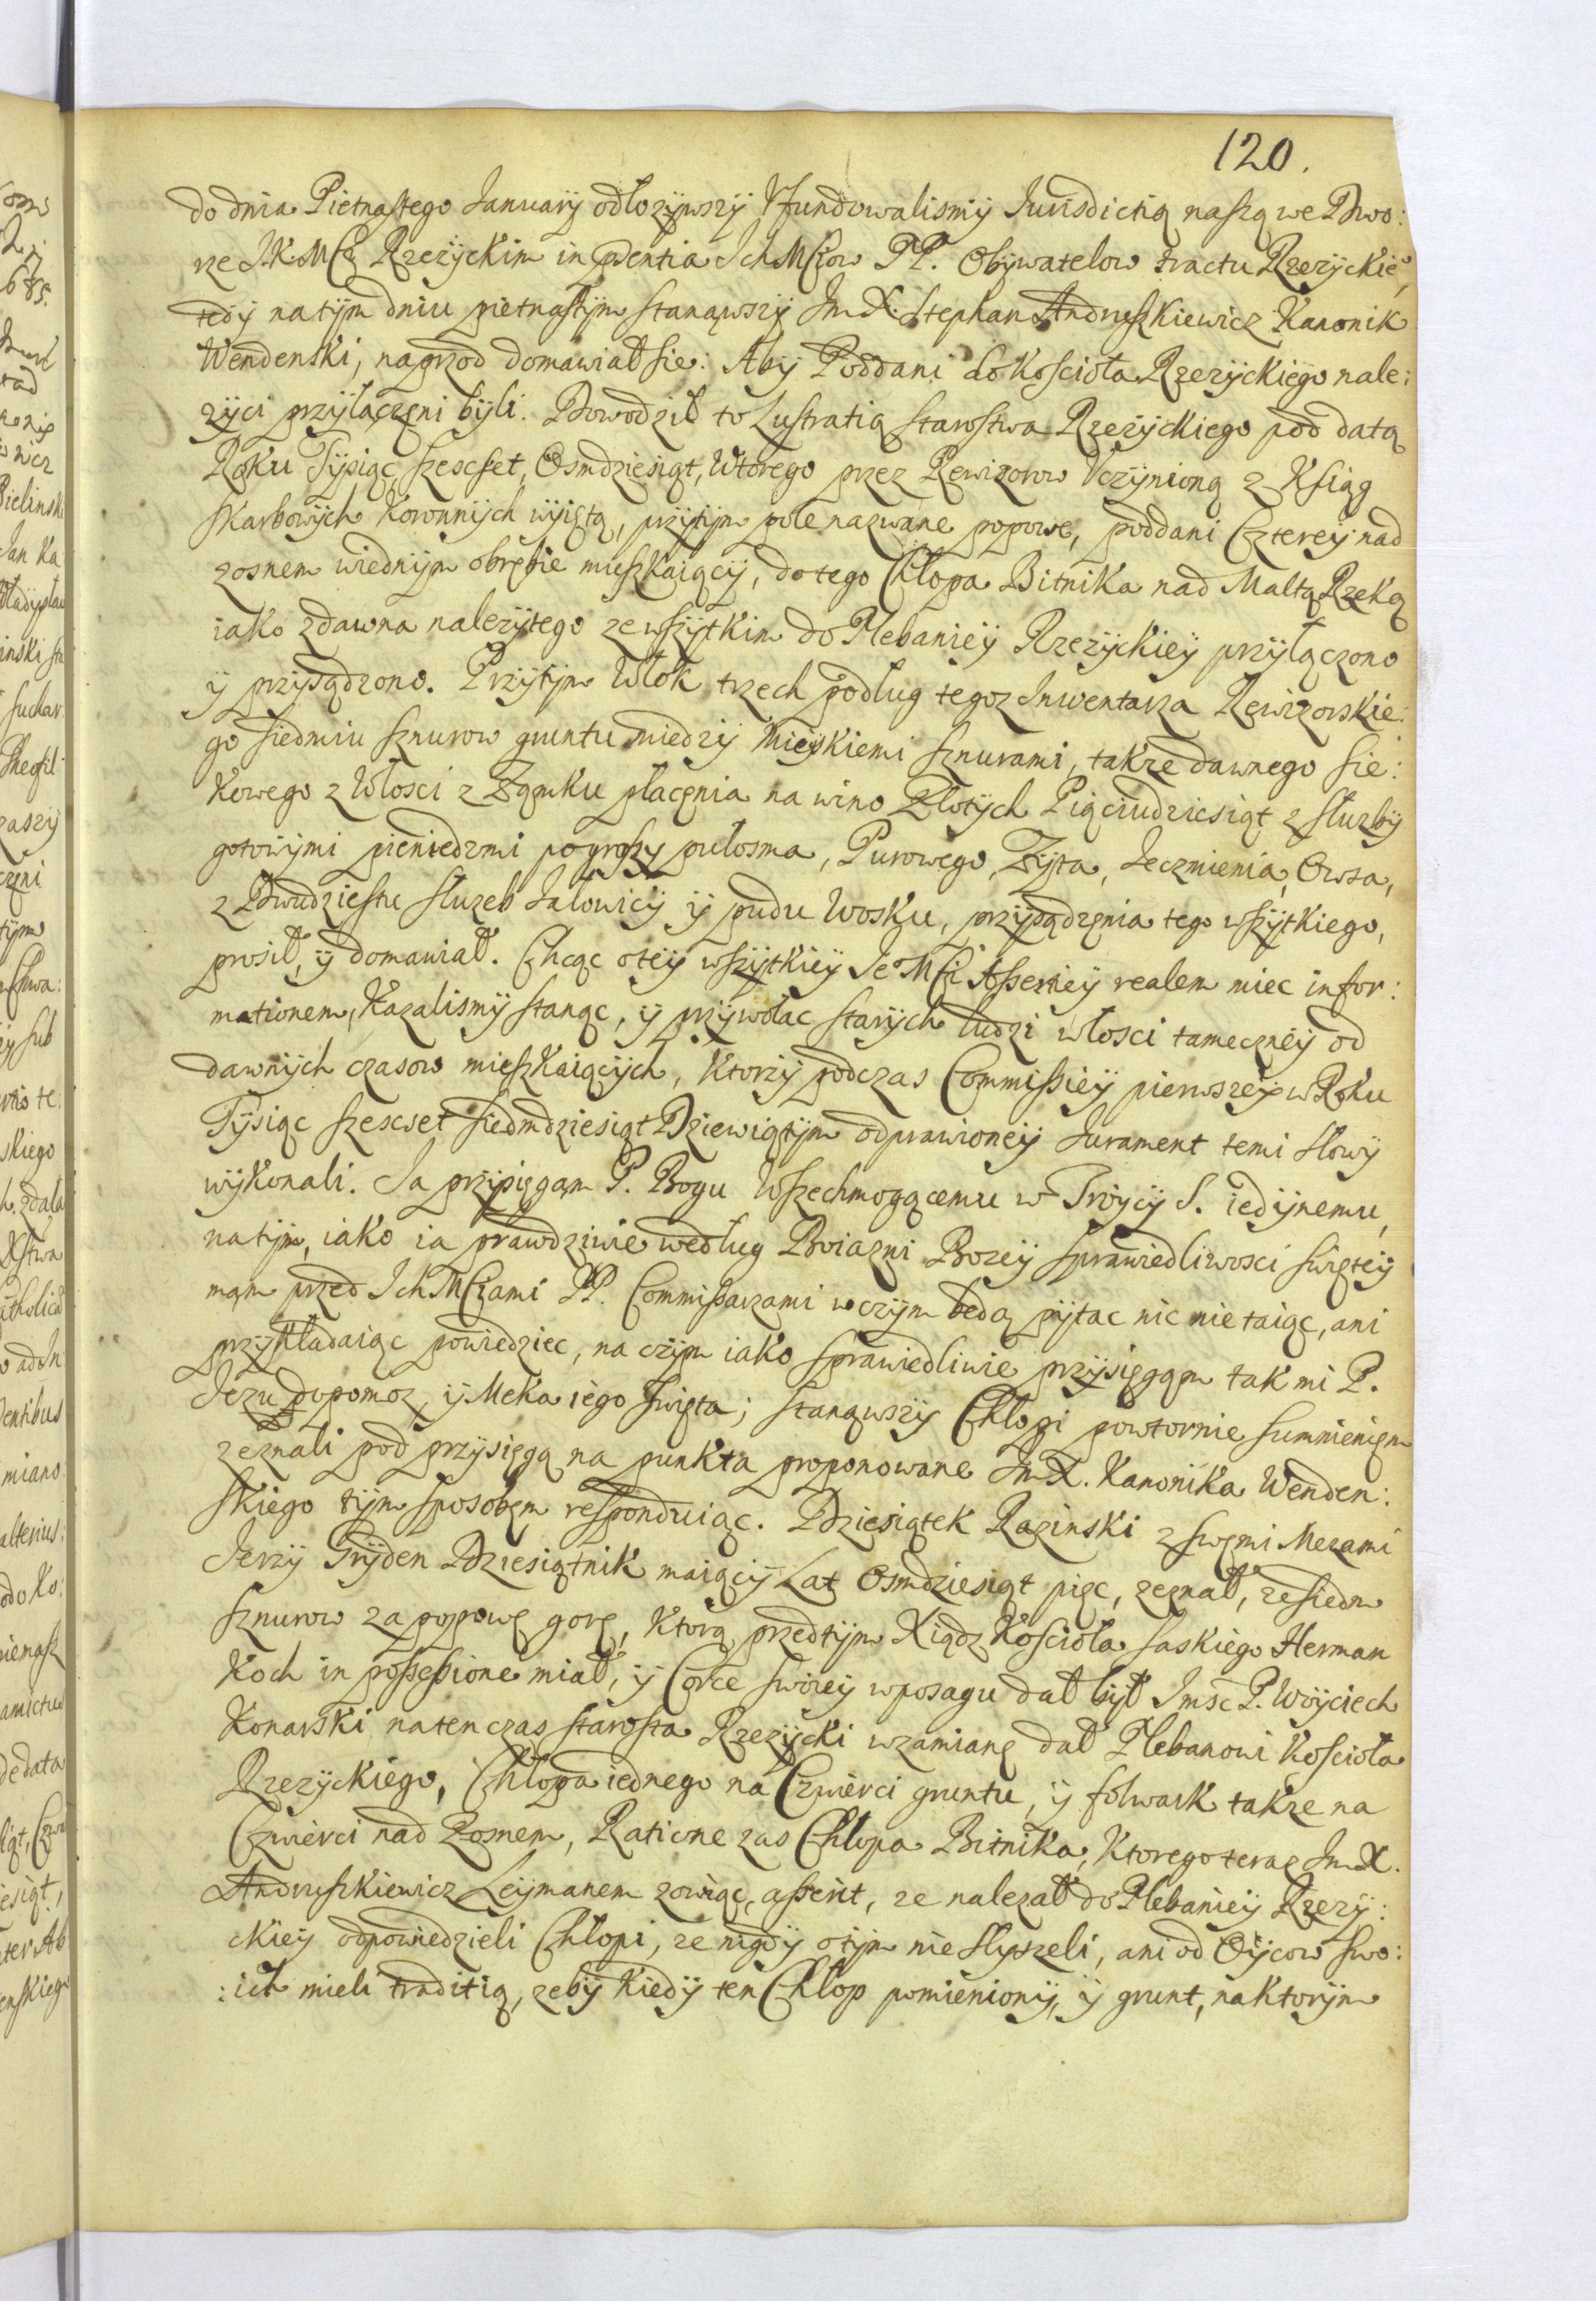 120.
do dnia Pietnastego January odłozywszy Vfundowalismy Iurisdictią naszą we Dwo:
rze J.K.Mści Rzezyckim in pdentia Ich Mściow PP. Obywatelow tractu Rzezyckie,
tedy na tym dniu pietnastym stanąwszy Im X. Stephan Andruszkiewicz Kanonik
Wendenski, naprzod domawiał sie: Aby Poddani do Kościoła Rzezyckiego nale:
zyci przyłączeni byli. Dowodził to Lustratią Starostwa Rzezyckiego pod datą
Roku Tysiąc, szescset, Osmdziesiąt, Wtorego przez Rewizorow Vczynioną z Ksiąg
skarbowych Koronnych wyiętą, przytym pole nazwane popowe, poddani Czterey nad
zosnem wiednym obrębie mieszkaiący, do tego Chłopa Bitnika nad Maltą Rzeką
iako zdawna nalezytego ze wszytkim do Plebaniey Rzezyckiey przyłączono
y przysądzono. Przytym Włok trzech podług tegoz Inwentarza Rewizorskie:
go siedmiu sznurow gruntu miedzy Mieyskiemi sznurami, takze dawnego sie:
kowego z Włosci z Zamku płacenia na wino Złotych Pięciudziesiąt z słuzby
gotowymi pieniedzmi po groszy pułosma, Purowego, Zyta, Ieczmienia, Owsa,
z Dwudziestu słuzeb Iałowicy y pudu Wosku, przysądzenia tego wszytkiego,
prosił, y domawiał. Chcąc o tey wszytkiey Ie Mści Assertiey realem miec infor:
mationem, Kazalismy stanąc, y przywołac starych ludzi włosci tameczney od
dawnych czasow mieszkaiących, Ktorzy podczas Commissiey pierwszey w Roku
Tysiąc szescset siedmdziesiąt Dziewiątym odprawioney Iurament temi słowy
wykonali. Ia przysięgam P. Bogu Wszechmogącemu w Troycy S. iedynemu,
na tym, iako ia prawdziwie według Boiazni Bozey sprawiedliwosci swiętey
mam przed Ich Mściami PP. Commissarzami w czym będą pytac nic nie taiąc, ani
przykładaiąc powiedziec, na czym iako sprawiedliwie przysięgam tak mi P.
Iezu dopomoz, y Meka iego swięta; stanąwszy Chłopi powtornie summieniem
zeznali pod przysięgą na punkta proponowane Im X. Kanonika Wenden:
skiego tym sposobem respondуiąc. Dziesiątek Razinski z swemi Mezami
Ierzy Gryden Dziesiątnik maiący Lat Osmdziesiąt pięc, zeznał, ze siedm
sznurow za popową gorę, Ktorą przedtym Xiądz Kościoła saskiego Herman
Koch in possessione miał, y Corce swoiey w posagu dał był Imsc P. Woyciech
Konarski na ten czas starosta Rzezycki w zamianę dał Plebanowi Kościoła
Rzezyckiego, Chłopa iednego na Czwierci gruntu, y folwark takze na
Czwierci nad Zosnem, Ratione zas Chłopa Bitnika, Ktorego teraz Im X.
Andruszkiewicz Leymanem zowiąc, asserit, ze nalezał do Plebaniey Rzezy:
ckiey odpowiedzieli Chłopi, ze nigdy o tym nie słyszeli, ani od Oycow swo:
:ich mieli traditią, zeby kiedy ten Chłop pomieniony, y grunt, na Ktorym